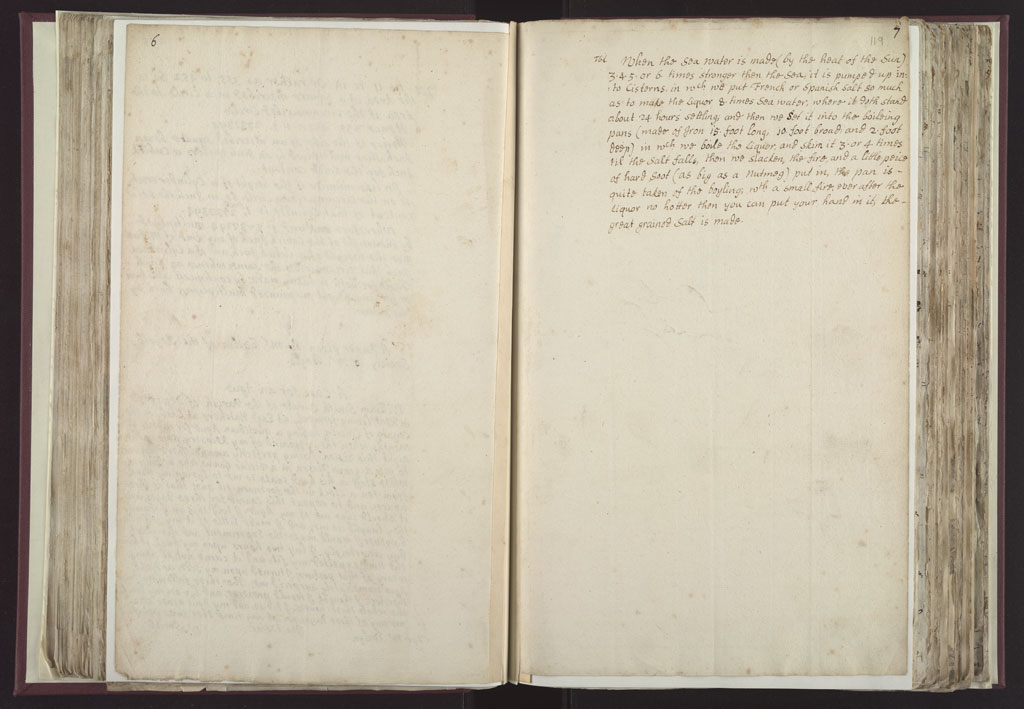 6
7
119
When the Sea water is made (by the heat of the Sun)
3. 4. 5. or 6 times stronger then the Sea, it is pumped up in-
to Cisterns, in wch we put French or Spanish salt so much
as to make the Liquor 8 times Sea water, where it doth stand
about 24 hours setling, and then we Set it into the boileing
pans (made of Iron 15 foot long, 10 foot broad, and 2 foot
deep) in wch we boile the Liquor, and skim it 3. or 4. times
til the Salt falls, then we slacken the fire, and a little peice
of hard Soot (as big as a Nutmeg) put in, the pan is -
quite taken of the boyling, wth a small fire, ever after the
Liquor no hotter then you can put your hand in it, the -
great grained Salt is made.